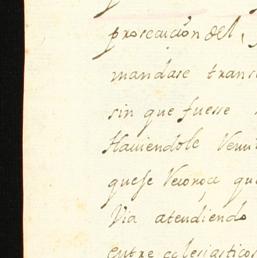 prosecuiçion del,
mandase trans
sin que fuesse
Haviendole Venit
quese Veconoca qu
Via atendiendo
entre eclesiastico